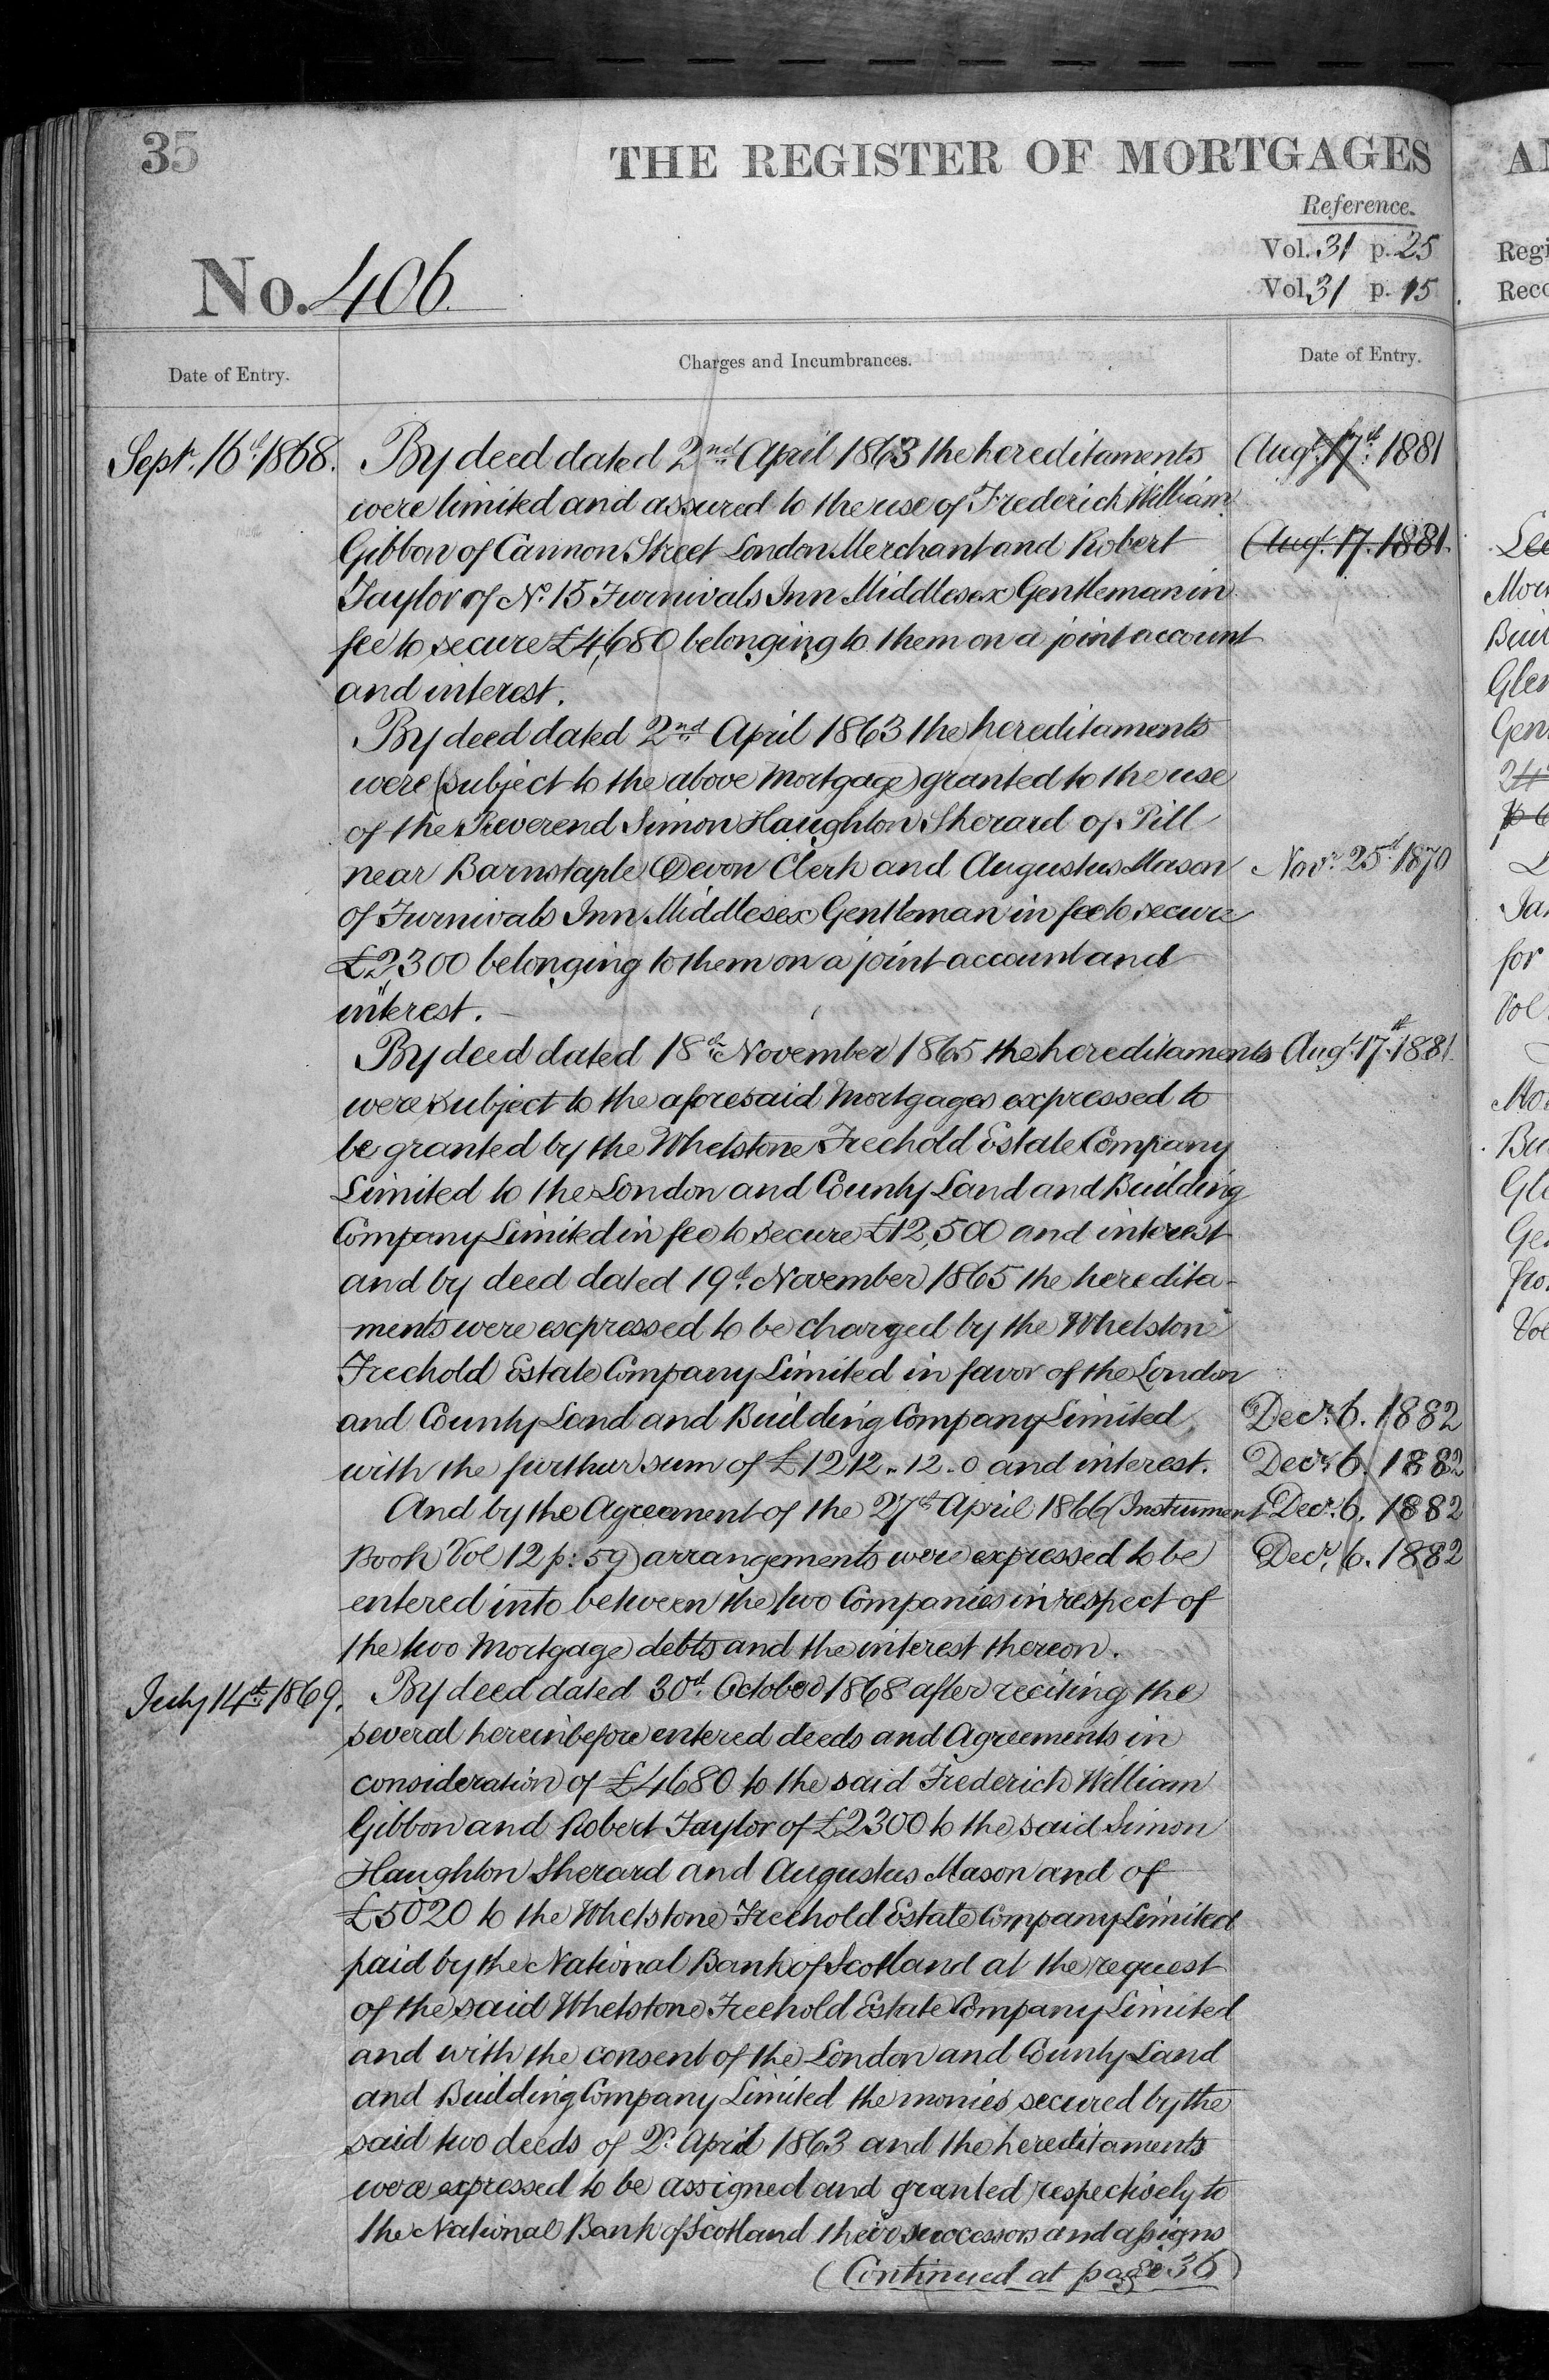 35
THE REGISTER OF MORTGAGES
Reference.
Vol. 31 p. 25
Vol. 31 p. 15
No. 406.
Date of Entry.
Charges and Incumbrances.
Date of Entry.
Sept. 16th 1868.
By deed dated 2nd April 1863 the hereditaments
were limited and assured to the use of Frederick William
Gibbon of Cannon Street London Merchant and Robert
Taylor of No. 15 Furnivals Inn Middlesex Gentleman in
fee to secure £4,680 belonging to them on a joint account
and interest.
By deed dated 2nd April 1863 the hereditaments
were (subject to the above Mortgage) granted to the use
of the Reverend Simon Haughton Sherard of Pill
near Barnstaple Devon Clerk and Augustus Mason
of Furnivals Inn Middlesex Gentleman in fee to secure
£2,300 belonging to them on a joint account and
interest.
By deed dated 18th November 1865 the hereditaments
were subject to the aforesaid Mortgages expressed to
be granted by the Whetstone Freehold Estate Company
Limited to the London and County Land and Building
Company Limited in fee to secure £12,500 and interest
and by deed dated 19th November 1865 the heredita-
ments were expressed to be charged by the Whetstone
Freehold Estate Company Limited in favor of the London
and County Land and Building Company Limited
with the further sum of £1212..12..0 and interest.
And by the Agreement of the 27th April 1866 (Instrument
Book Vol 12 p: 59) arrangements were expressed to be
entered into between the two Companies in respect of
the two Mortgage debts and the interest thereon.
July 14th 1869.
By deed dated 30th October 1868 after reciting the
several hereinbefore entered deeds and Agreements in
consideration of £4680 to the said Frederick William
Gibbon and Robert Taylor of £2300 to the said Simon
Haughton Sherard and Augustus Mason and of
£5020 to the Whetstone Freehold Estate Company Limited
paid by the National Bank of Scotland at the request
of the said Whetstone Freehold Estate Company Limited
and with the consent of the London and County Land
and Building Company Limited the monies secured by the
said two deeds of 2d. April 1863 and the hereditaments
were expressed to be assigned and granted respectively to
the National Bank of Scotland their successors and assigns
(Continued at page 36)
Augt. 17th 1881
Augt. 17. 1881
Novr. 25th 1870
Augt. 17th 1881.
Decr. 6. 1882
Decr. 6. 1882
Decr. 6. 1882
Decr. 6. 1882
AN
Regi
Reco
Buil
Glen
Gen
for
Vol